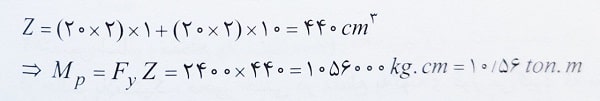 Z = (۲۰×۲)×۱ + (۲۰×۲)×۱۰ = ۴۴۰ cm³
⇒ M_p = F_y Z = ۲۴۰۰×۴۴۰ = ۱۰۵۶۰۰۰ kg.cm = ۱۰/۵۶ ton.m